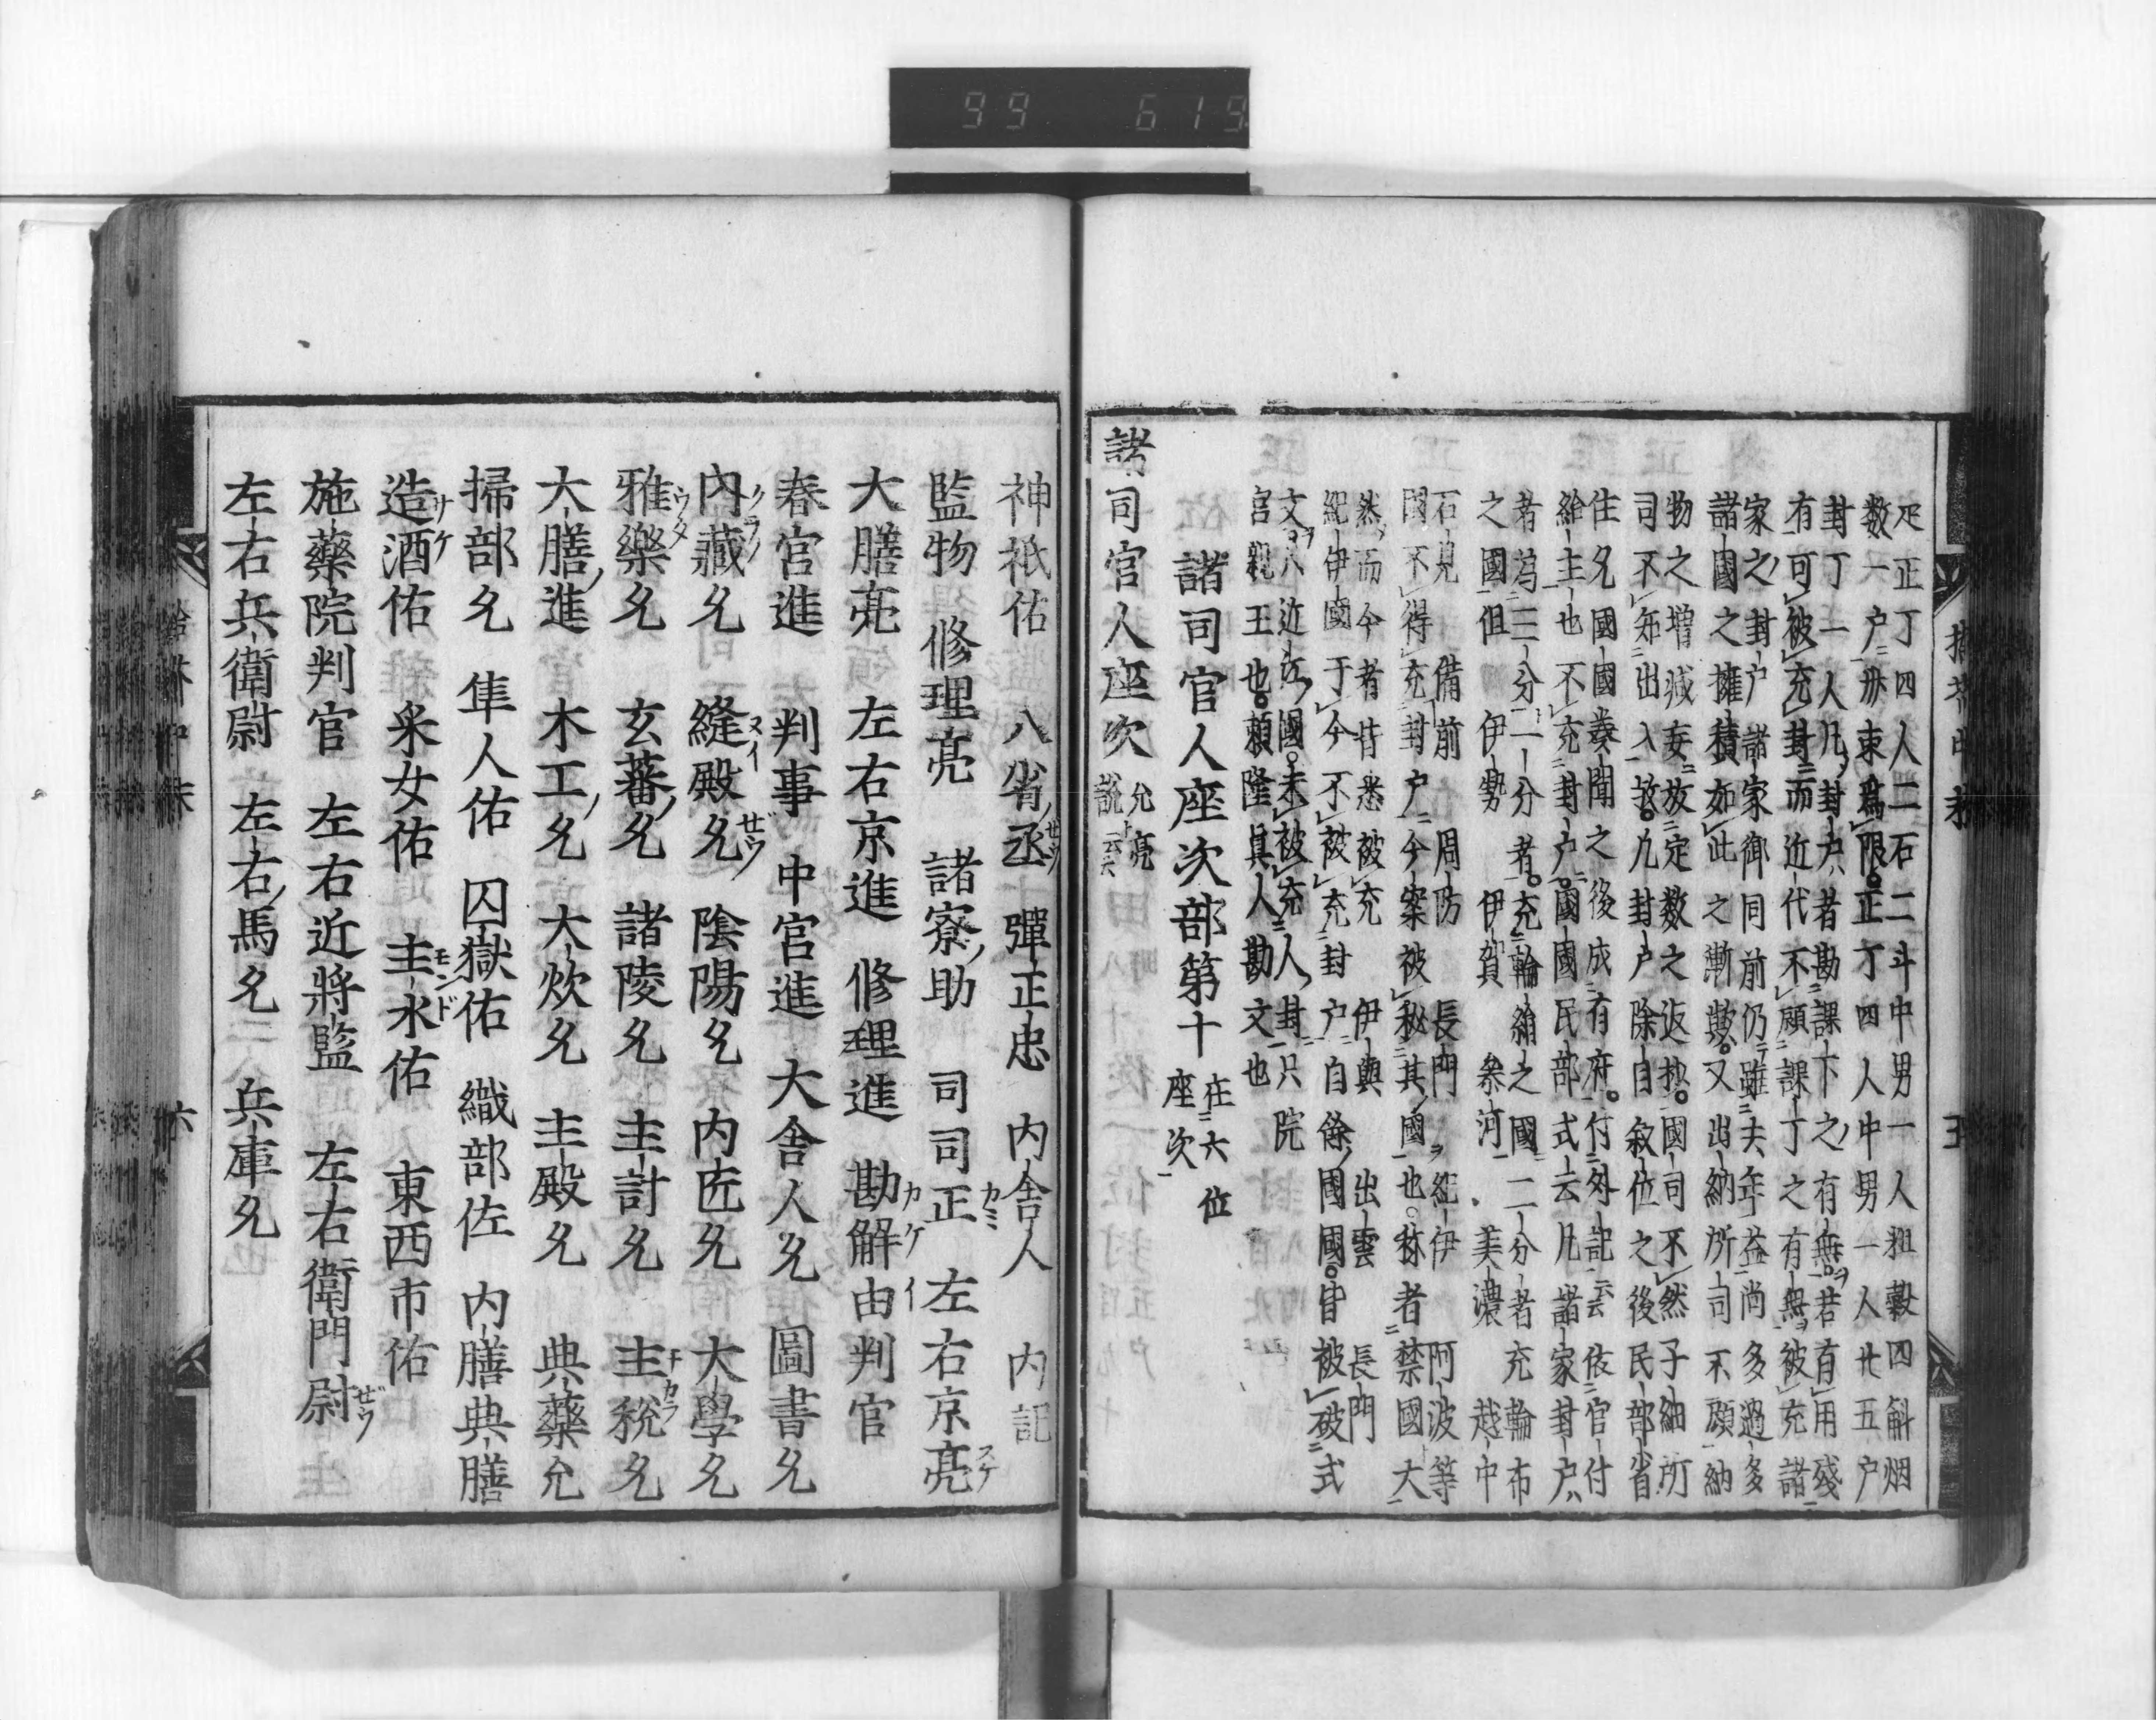 疋正丁四人二石二斗中男一人租穀四斛烟
数一户卅束爲限正丁四人中男一人廿五户
封丁一人凡封户者勘課下之有無若有用殘
有可被充封而近代不顧課丁之有無被充諸
家之封户諸家御同前仍雖夫年益尚多過多
諸國之擁積如此之漸歟又出納所司不顧納
物之増减妄放定数之返抄國司不然子細所
司不知出入故凡封户除目叙位之後民部省
住名國國奏聞之後成有府付外記云云依官付
給主也不充封户國國民部式云凡諸家封户
者為三分一分者充輪絹之國二分者充輪布
之國但 伊勢 伊賀 参河 美濃 越中
石見 備前 周防 長門 紀伊 阿波等
國不得充封户今案被秘其國也称者禁國大
然而今者皆悉被充 伊與 出雲 長門
紀伊國于今不被充封户自餘國國皆被破式
文八近江國未被充人封只院
宮親王也頼隆真人勘文也
諸司官人座次部第十 在六位座次
諸司官人座次 允亮説云云
神祇佑 八省丞 彈正忠 内舎人 内記
監物 修理亮 諸寮助 司司正 左右京亮
大膳亮 左右京進 修理進 勘解由判官
春宮進 判事 中宮進 大舎人允 圖書允
内藏允 縫殿允 陰陽允 内匠允 大學允
雅樂允 玄蕃允 諸陵允 主計允 主税允
大膳進 木工允 大炊允 主殿允 典藥允
掃部允 隼人佑 囚獄佑 織部佐 内膳典膳
造酒佑 采女佑 主水佑 東西市佑
施藥院判官 左右近將監 左右衛門尉
左右兵衛尉 左右馬允 兵庫允
六